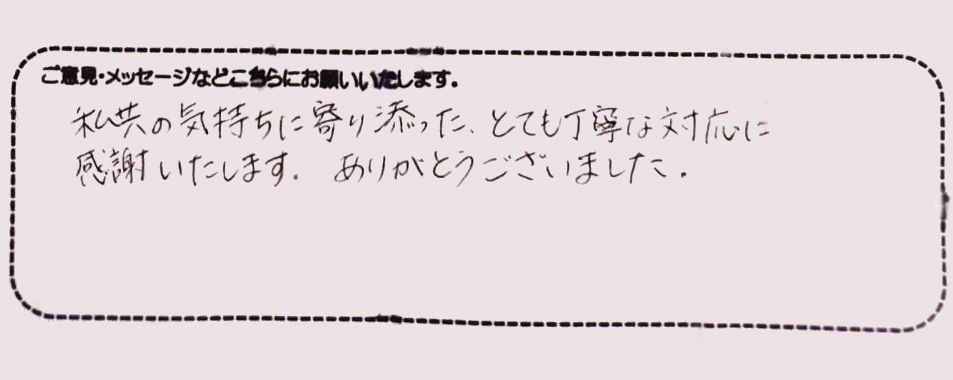 ご意見・メッセージなどこちらにお願いいたします。
私共の気持ちに寄り添った、とても丁寧な対応に
感謝いたします。 ありがとうございました。